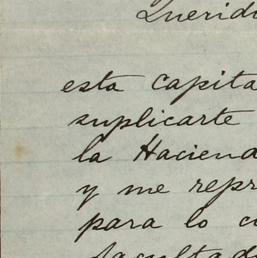 Querid
esta capita
suplicarte
la Haciend
y me repr
para lo c
facultad